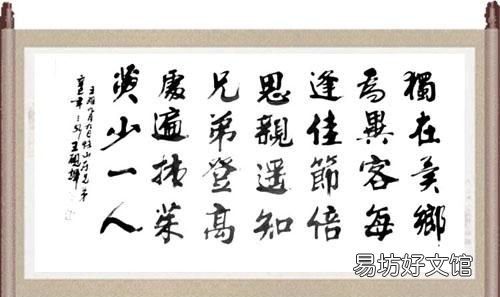 獨在異鄉
為異客每
逢佳節倍
思親遥知
兄弟登高
處遍插茱
萸少一人
王維九月九日憶山東兄弟
易坊好文馆